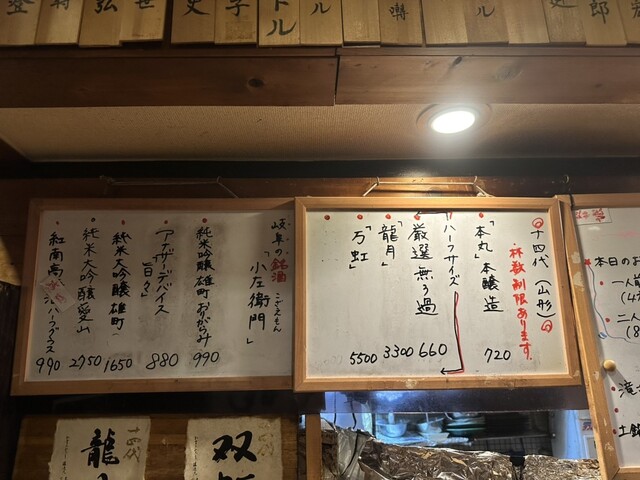 登
弘
世
史
子
トル
ル
囃
ル
郎
十四代 (山形)
杯数制限あります。
「本丸」本醸造 720
ハーフサイズ
厳選無ろ過 660
「龍月」 3300
「万虹」 5500
岐阜の銘酒
こざえもん
「小左衛門」
純米吟醸雄町おりがらみ 990
アナザーデバイス
「旨々」 880
純米大吟醸雄町 1650
純米大吟醸愛山 2750
紅南高
ハーフグラス 990
本日のお
一人前
二人
土鍋
十四代
龍
十四代
双